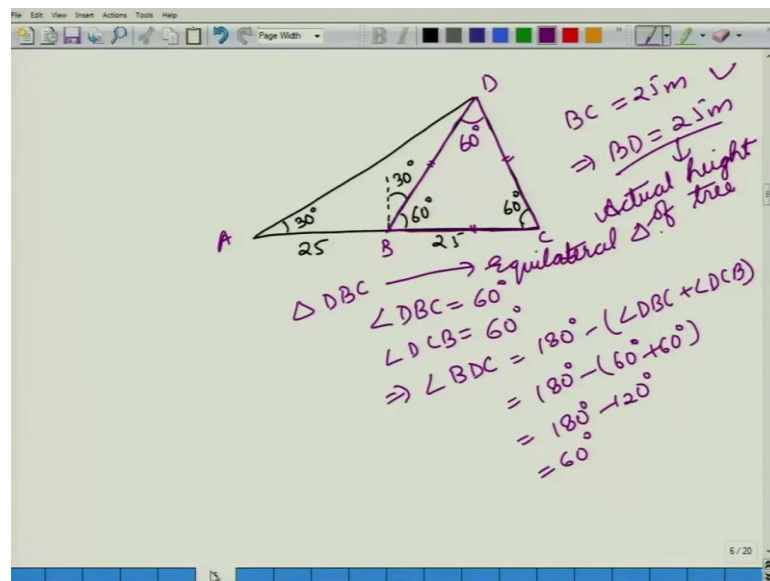 File Edit View Insert Actions Tools Help
Page Width
B I
D
60°
30°
30°
60°
60°
A
25
B
25
C
BC = 25m ✓
⇒ BD = 25m
↓
Actual height
of tree
△ DBC ⟶ Equilateral △.
∠DBC = 60°
∠DCB = 60°
⇒ ∠BDC = 180° - (∠DBC + ∠DCB)
= 180° - (60° + 60°)
= 180° - 120°
= 60°
6 / 20